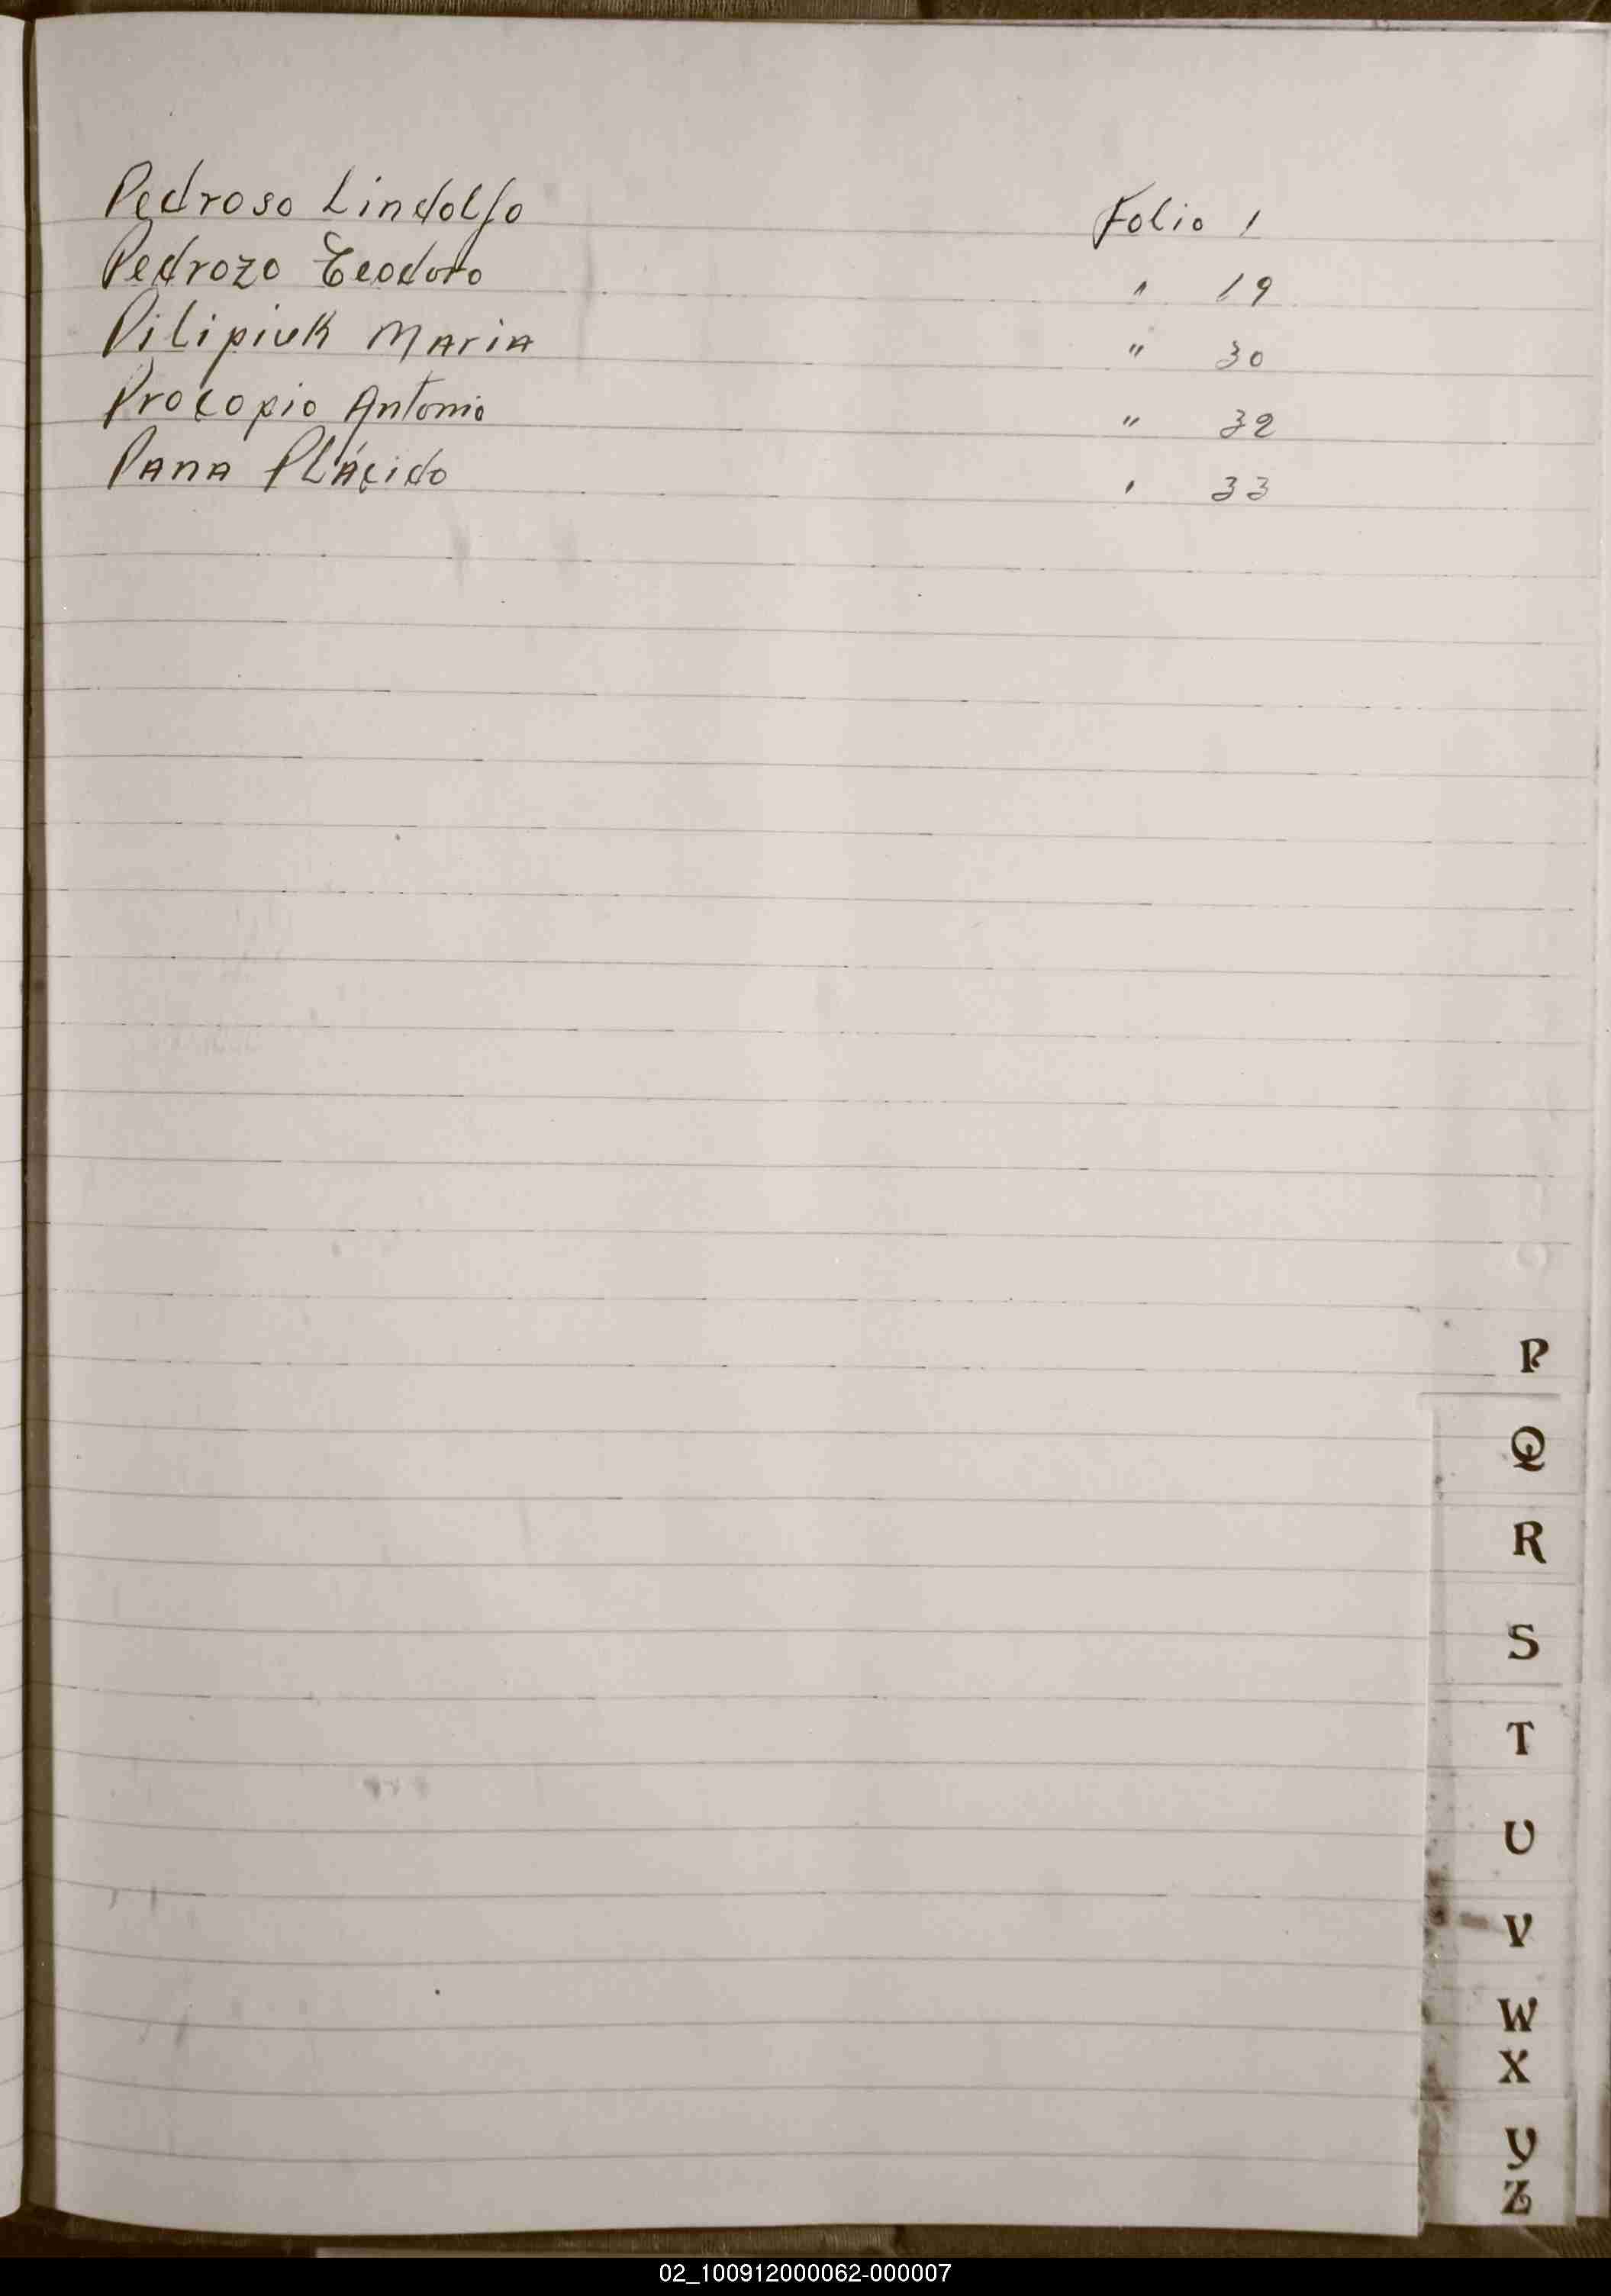 Pedroso Lindolfo Folio 1
Pedrozo Teodoro " 19
Pilipiuk Maria " 30
Procopio Antonio " 32
Pana Plácido " 33
P
Q
R
S
T
U
V
W
X
Y
Z
02_100912000062-000007